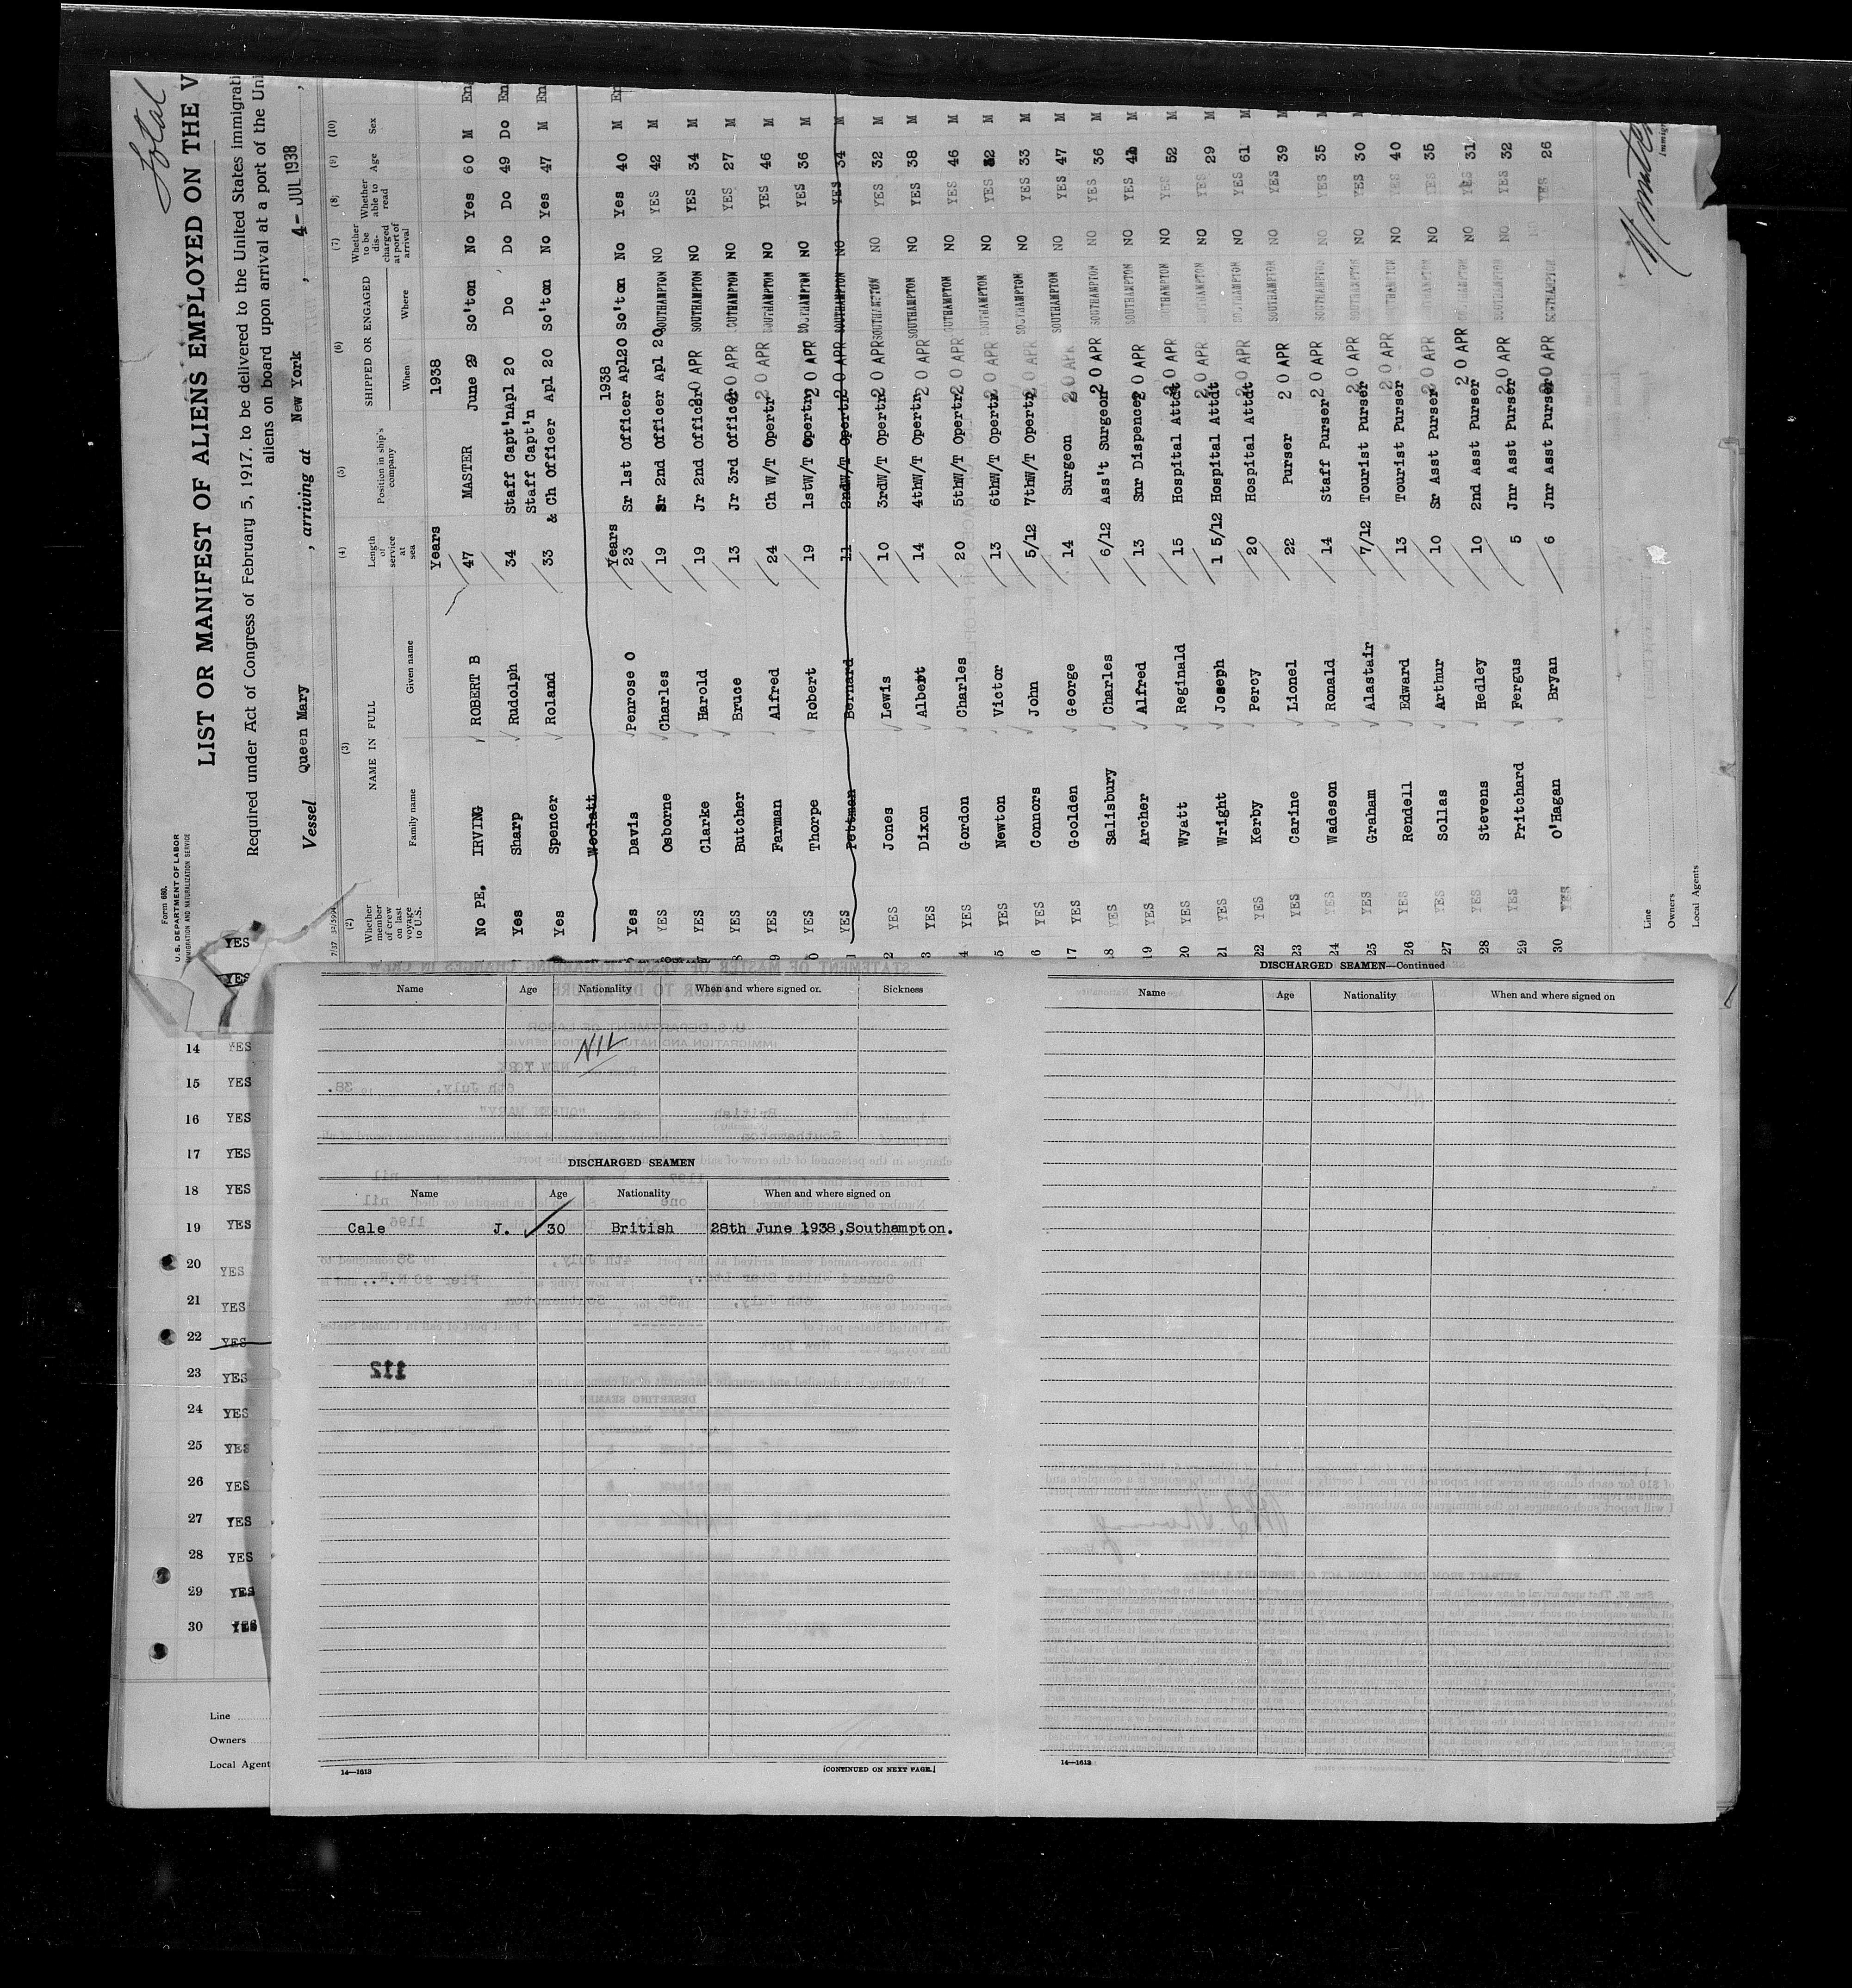 Total
Form 680.
U. S. DEPARTMENT OF LABOR
IMMIGRATION AND NATURALIZATION SERVICE
LIST OR MANIFEST OF ALIENS EMPLOYED ON THE V
Required under Act of Congress of February 5, 1917, to be delivered to the United States immigrati
aliens on board upon arrival at a port of the Uni
Vessel Queen Mary , arriving at New York , 4- JUL 1938 ,
(2) (3) (4) (5) (6) (7) (8) (9) (10)
Whether member of crew on last voyage to U.S. NAME IN FULL Family name Given name Length of service at sea Position in ship's company SHIPPED OR ENGAGED When Where Whether to be discharged at port of arrival Whether able to read Age Sex
Years 1938
No PE. IRVING ROBERT B 47 MASTER June 29 So'ton No Yes 60 M En
Yes Sharp Rudolph 34 Staff Capt'n Apl 20 Do Do Do 49 Do En
Staff Capt'n
Yes Spencer Roland 33 & Ch Officer Apl 20 So'ton No Yes 47 M En
Woolatt
Years 1938
Yes Davis Penrose O 23 Sr 1st Officer Apl20 So'ton No Yes 40 M En
YES Osborne Charles 19 Sr 2nd Officer Apl 20 SOUTHAMPTON NO YES 42 M
YES Clarke Harold 19 Jr 2nd Officer 20 APR SOUTHAMPTON NO YES 34 M
8 YES Butcher Bruce 13 Jr 3rd Officer 20 APR SOUTHAMPTON NO YES 27 M
9 YES Farman Alfred 24 Ch W/T Opertr 20 APR SOUTHAMPTON NO YES 46 M
0 YES Thorpe Robert 19 1stW/T Opertr 20 APR SOUTHAMPTON NO YES 36 M
1 YES Pettman Bernard 11 2ndW/T Opertr 20 APR SOUTHAMPTON NO YES 34 M
2 YES Jones Lewis 10 3rdW/T Opertr 20 APR SOUTHAMPTON NO YES 32 M
3 YES Dixon Albert 14 4thW/T Opertr 20 APR SOUTHAMPTON NO YES 38 M
4 YES Gordon Charles 20 5thW/T Opertr 20 APR SOUTHAMPTON NO YES 46 M
5 YES Newton Victor 13 6thW/T Opertr 20 APR SOUTHAMPTON NO YES 32 M
6 YES Connors John 5/12 7thW/T Opertr 20 APR SOUTHAMPTON NO YES 33 M
17 YES Goolden George 14 Surgeon 20 APR SOUTHAMPTON NO YES 47 M
18 YES Salisbury Charles 6/12 Ass't Surgeon 20 APR SOUTHAMPTON NO YES 36 M
19 YES Archer Alfred 13 Snr Dispencer 20 APR SOUTHAMPTON NO YES M
20 YES Wyatt Reginald 15 Hospital Attdt 20 APR SOUTHAMPTON NO YES 52 M
21 YES Wright Joseph 1 5/12 Hospital Attdt 20 APR SOUTHAMPTON NO YES 29 M
22 YES Kerby Percy 20 Hospital Attdt 20 APR SOUTHAMPTON NO YES 61 M
23 YES Carine Lionel 22 Purser 20 APR SOUTHAMPTON NO YES 39 M
24 YES Wadeson Ronald 14 Staff Purser 20 APR SOUTHAMPTON NO YES 35
25 YES Graham Alastair 7/12 Tourist Purser 20 APR SOUTHAMPTON NO YES 30
26 YES Rendell Edward 13 Tourist Purser 20 APR SOUTHAMPTON NO YES 40
27 YES Sollas Arthur 10 Sr Asst Purser 20 APR SOUTHAMPTON NO YES 35
28 YES Stevens Hedley 10 2nd Asst Purser 20 APR SOUTHAMPTON NO YES 31
29 YES Pritchard Fergus 5 Jnr Asst Purser 20 APR SOUTHAMPTON NO YES 32
30 YES O'Hagan Bryan 6 Jnr Asst Purser 20 APR SOUTHAMPTON NO YES 26
Line
Owners
Local Agents
Immigr
YES
YES
14 YES
15 YES
16 YES
17 YES
18 YES
19 YES
20 YES
21 YES
22 YES
23 YES
24 YES
25 YES
26 YES
27 YES
28 YES
29 YES
30 YES
Line
Owners
Local Agent
Name Age Nationality When and where signed on. Sickness
NIL
DISCHARGED SEAMEN
Name Age Nationality When and where signed on
Cale J. 30 British 28th June 1938,Southampton.
112
14—1613 [CONTINUED ON NEXT PAGE.]
DISCHARGED SEAMEN—Continued
Name Age Nationality When and where signed on
14—1613